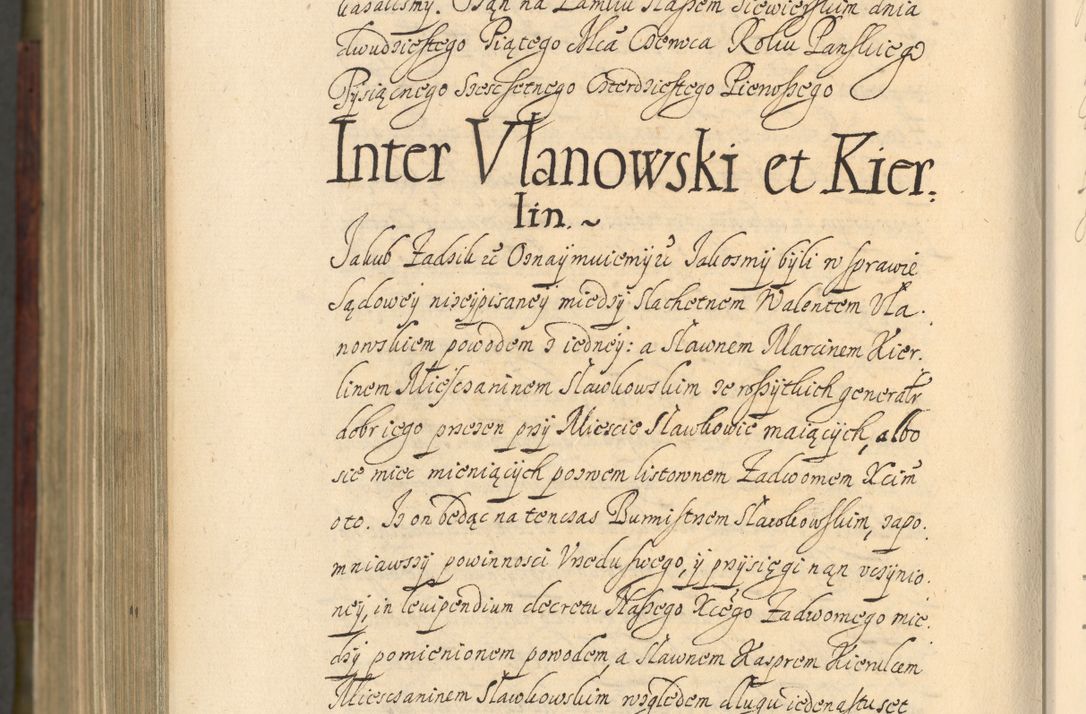 kazalismy. Dzan na Zamku Naszem Siewierskim dnia
dwudziestego Piątego Mca Czerwca Roku Panskiego
Tysiącnego Szescsetnego Czterdziestego Pierwszego
Inter Vlanowski et Kier:
lin. ~
Jakub Zadzik etc Oznaymuiemy iż Jakosmy byli w sprawie
sądowey niżeypisaney między slachetnem Walentem Vla.
nowskiem powodem z iedney: a Sławnem Marcinem Kier.
linem Miesczaninem Sławkowskim ze wszytkich generałr
dobr iego przezen przy Miescie Sławkowie maiących, albo
sie miec mieniących pozwem listownem Zadwornem Xcim
oto. Iz on będąc na tenczas Burmistrzem Sławkowskim, zapo.
mniawszy powinnosci Vrzędu swego, y przysięgi nan vczynio.
ney, in levipendium decretu Naszego Xcego Zadwornego mie.
dzy pomienionem powodem, a Sławnem Kasprem Kierulcem
Miesczaninem Sławkowskim względem długu iedenastuset